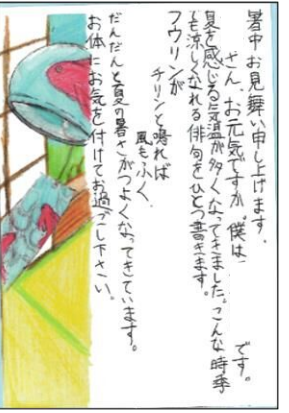 暑中お見舞い申し上げます。
さん、お元気ですか。僕は　です。
夏を感じる気温が多くなってきました。こんな時季
でも涼しくなれる俳句をひとつ書きます。
フウリンが
チリンと鳴れば
風もふく
だんだんと夏の暑さがつよくなってきています。
お体にお気を付けてお過ごし下さい。